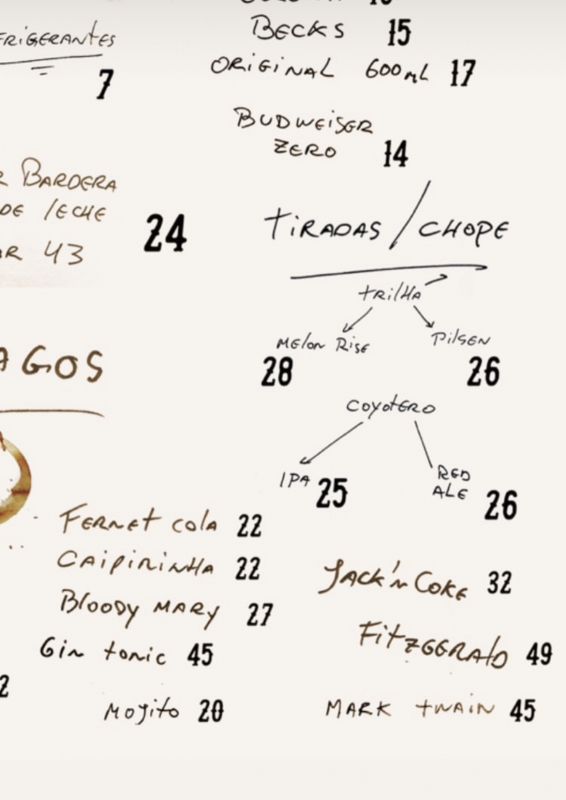 BECKS 15
ORIGINAL 600mL 17
BUDWEISER
ZERO 14
7
BARDERA
DE LECHE
43
24
TIRADAS / CHOPE
TRILHA
MELON RISE 28
PILSEN 26
COYOTERO
IPA 25
RED
ALE 26
FERNET COLA 22
CAIPIRINHA 22
BLOODY MARY 27
GIN TONIC 45
MOJITO 20
JACK'N COKE 32
FITZGERALD 49
MARK TWAIN 45